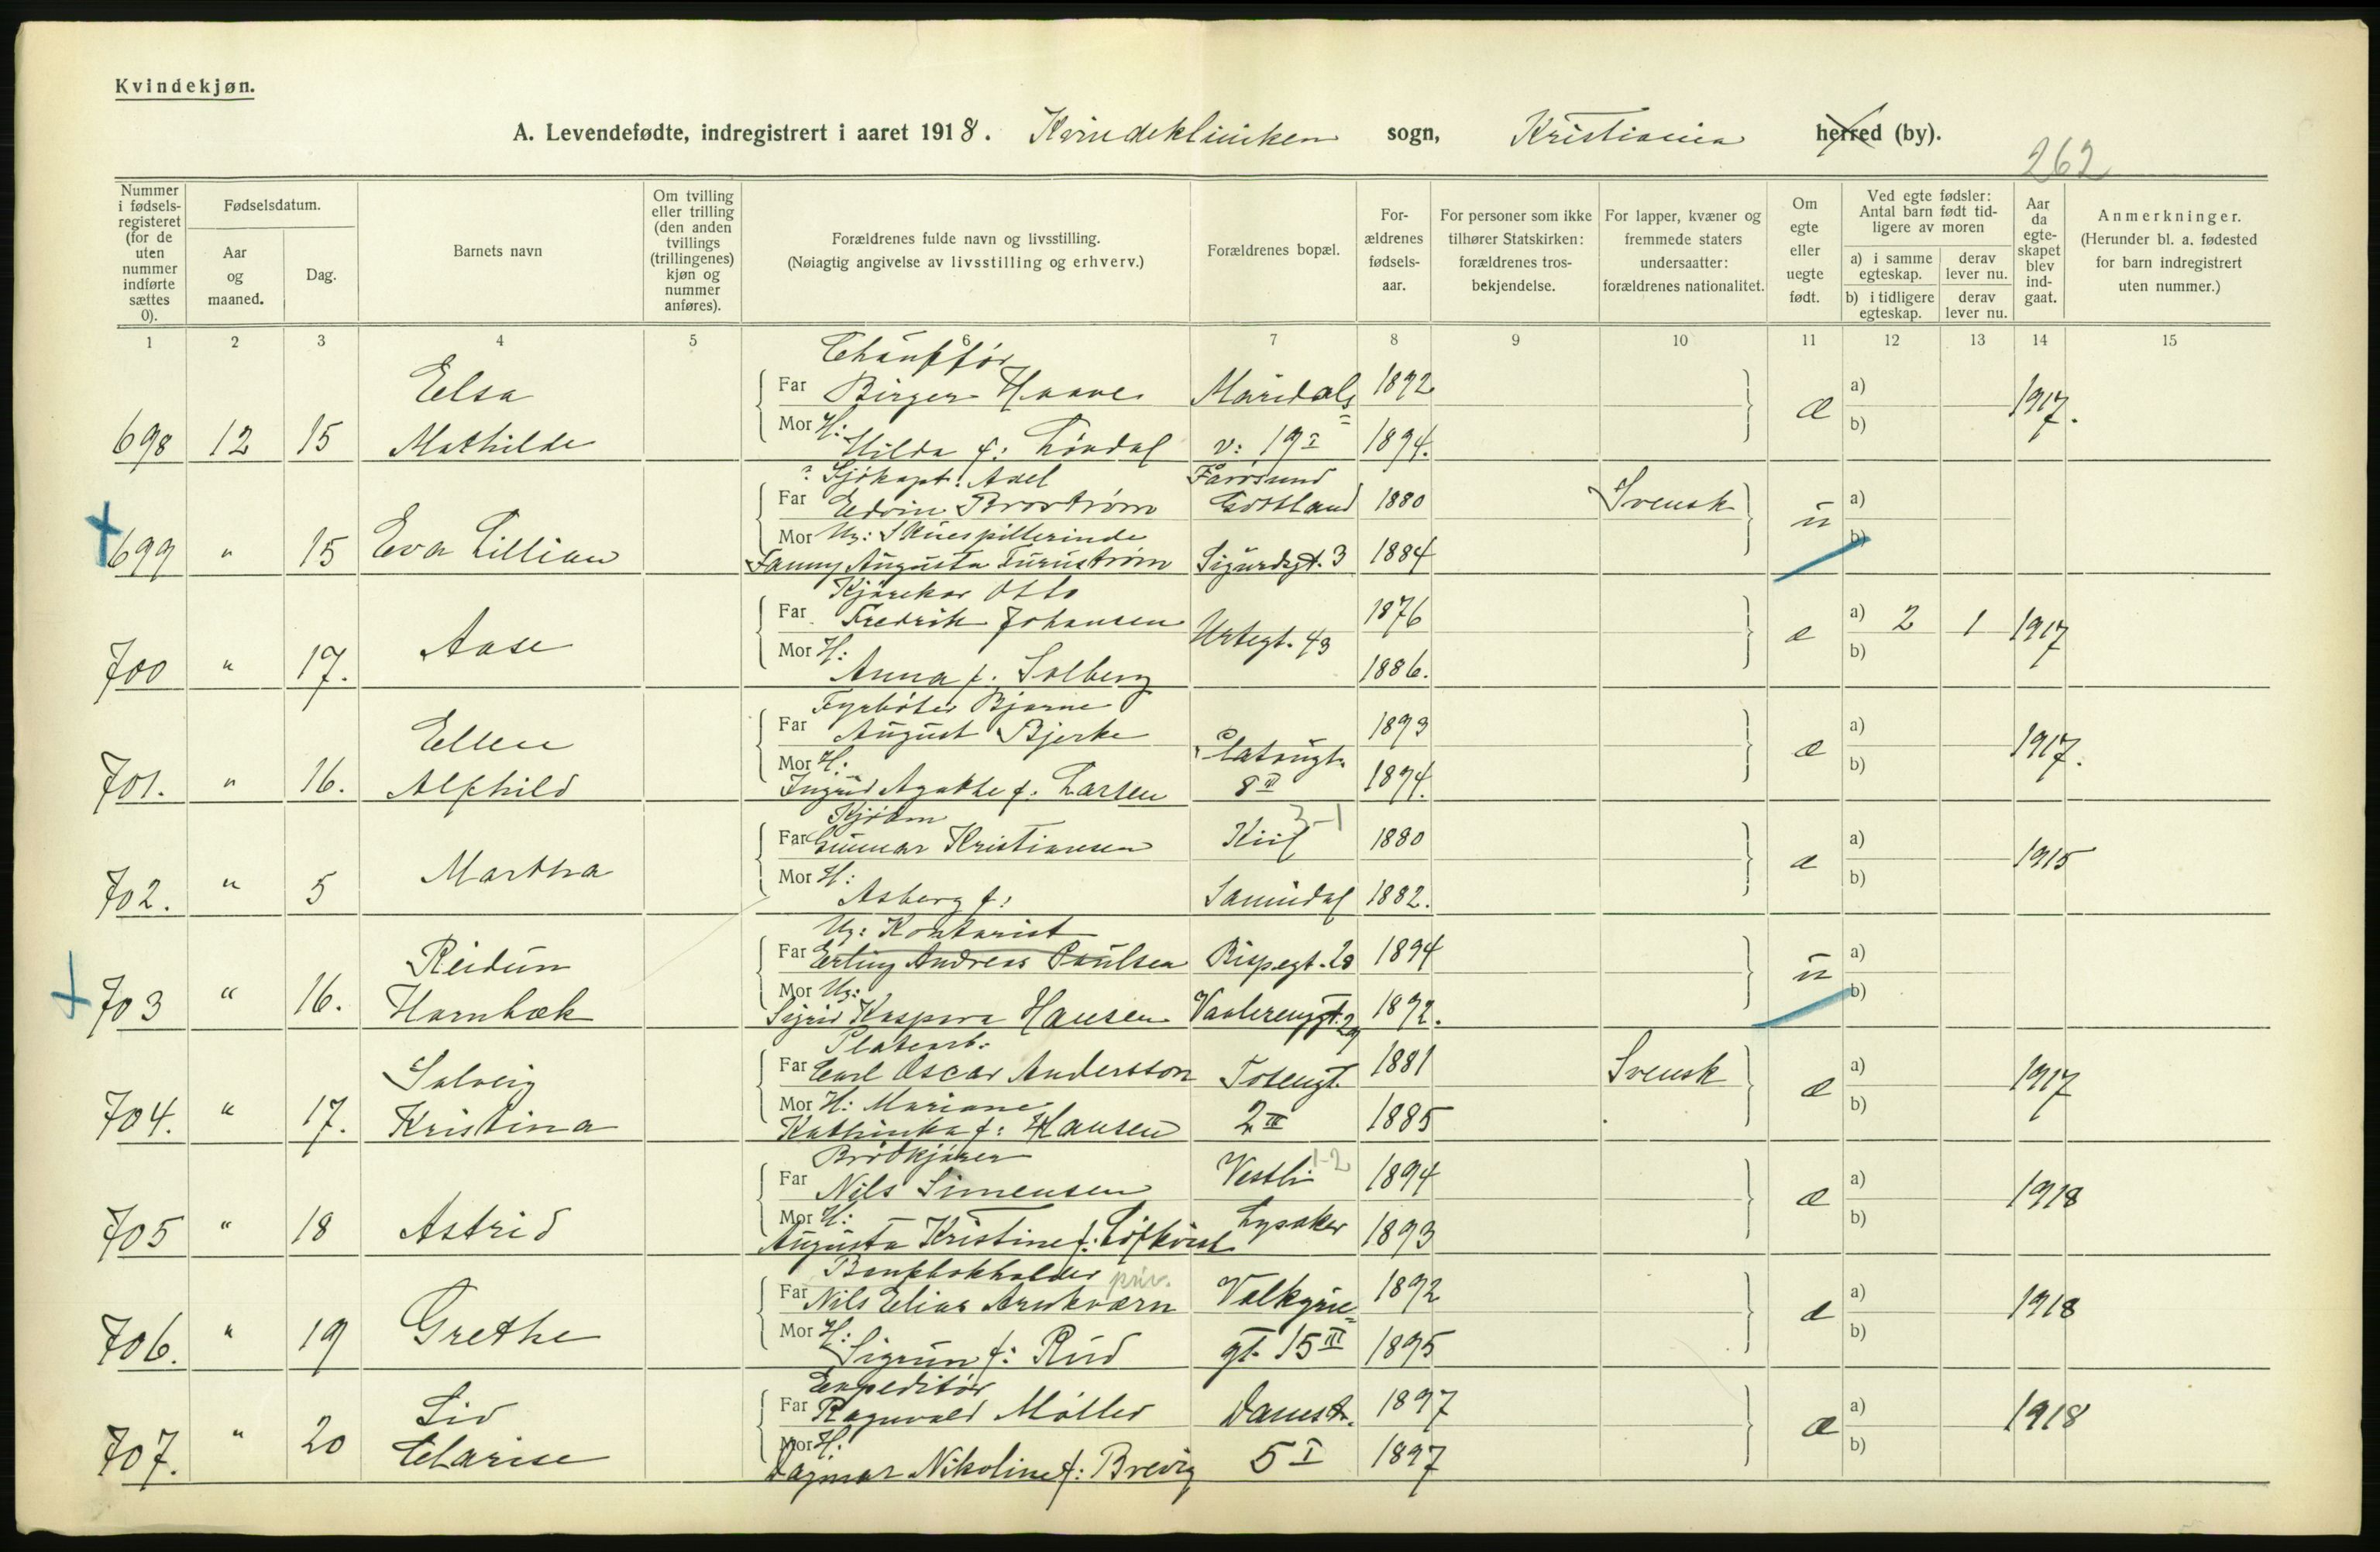 Kvindekjøn.
A. Levendefødte, indregistrert i aaret 1918. Kvindekliniken sogn, Kristiania herred (by).
262
Nummer i fødsels-registeret (for de uten nummer indførte sættes 0).
Fødselsdatum.
Aar og maaned.
Dag.
Barnets navn
Om tvilling eller trilling (den anden tvillings (trillingenes) kjøn og nummer anføres).
Forældrenes fulde navn og livsstilling.
(Nøiagtig angivelse av livsstilling og erhverv.)
Forældrenes bopæl.
For-ældrenes fødsels-aar.
For personer som ikke tilhører Statskirken: forældrenes tros-bekjendelse.
For lapper, kvæner og fremmede staters undersaatter: forældrenes nationalitet.
Om egte eller uegte født.
Ved egte fødsler: Antal barn født tid-ligere av moren
a) i samme egteskap.
derav lever nu.
b) i tidligere egteskap.
derav lever nu.
Aar da egte-skapet blev ind-gaat.
Anmerkninger.
(Herunder bl. a. fødested for barn indregistrert uten nummer.)
1 2 3 4 5 6 7 8 9 10 11 12 13 14 15
Chauffør
Elsa Far Birger Haave Maridals 1892 a)
698 12 15 Mathilde Mor H: Hilda f: Lindal v: 19 I 1894. æ b) 1917.
? Sjökapt: Axel Farösund
Far Edvin Broström Gottland 1880 Svensk a)
Mor Ug: Skuespillerinde ü b)
699 " 15 Eva Lillian Fanny Augusta Turnström Sigurdsgt. 3 1884
Kjørekar Otto
Far Fredrik Johansen 1876 a) 2 1 1917
Aase Urtegt. 43 æ
700 " 17. Mor H: Anna f. Solberg 1886. b)
Fyrbøter Bjarne
Ellen Far August Bjerke 1893 a)
Mor H: Platousgt. æ b) 1917.
701. " 16. Alfhild Ingrid Agathe f: Larsen 8 II 1894.
Kjøbm 3-1
Far Gunnar Kristiansen Kiil 1880 a) 1915
Martha æ
702. " 5 Mor H: Asberg f: Sannidal 1882. b)
Ug: Kontorist
Reidun Far Erling Andreas Paulsen Bispegt. 20 1894 a)
Mor Ug: ü b)
703 " 16. Hornbæk Sigrid Kaspara Hansen Vaalerenggt. 29 1892.
Platearb:
Solveig Far Carl Oscar Andersson Totengt. 1881 Svensk a) 1917
Mor H: Mariane æ b)
704. " 17. Kristina Kathinka f: Hansen 2 III 1885
Brödkjører 1-2
Far Nils Simensen Vestli 1894 a)
Mor H: Lysaker æ b) 1918
705 " 18 Astrid Augusta Kristine f: Löfkvist 1893
Bankbokholder priv.
Far Nils Elias Arnkværn Valkyrie= 1892 a) 1918
706. " 19 Grethe Mor H: Sigrun f: Rud gt. 15 III 1895 æ b)
Expeditör
Liv Far Ragnvald Möller Damstr. 1897 a) 1918
Mor H: æ b)
707. " 20 Clarise Dagmar Nikoline f: Brevig 5 I 1897